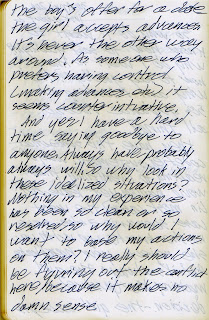 the boy's offer for a date
the girl accepts advances
it's never the other way
around. As someone who
prefers having control
(making advances, etc) it
seems counter intuitive.
And yes I have a hard
time saying goodbye to
anyone. Always have, probably
always will, so why look in
these idealized situations?
Nothing in my experience
has been so clean or so
resolved so why would I
want to base my actions
on them? I really should
be figuring out the conflict
here, because it makes no
damn sense